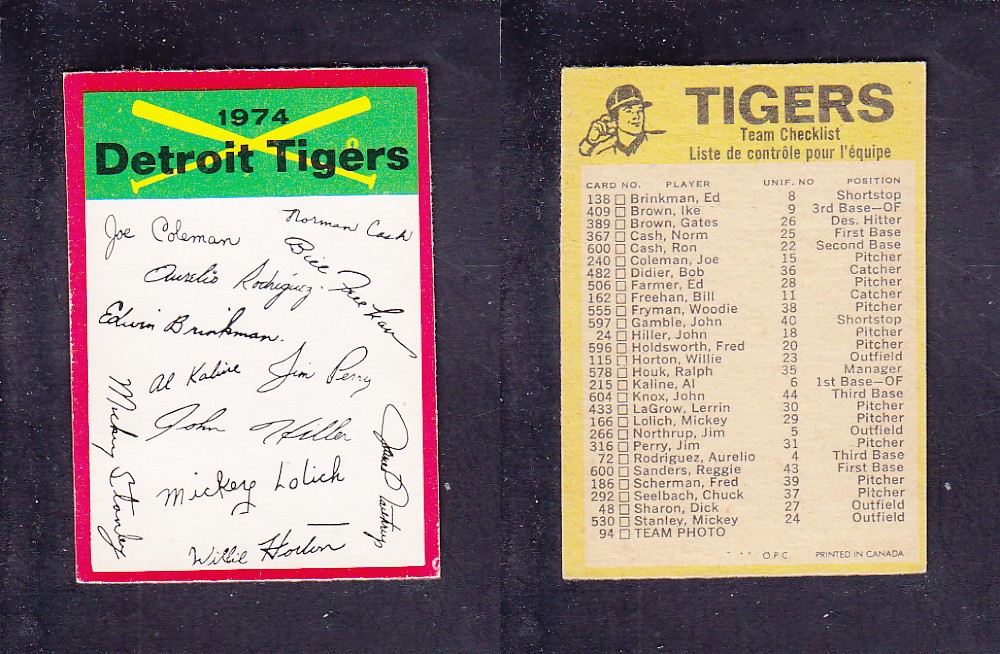 1974
Detroit Tigers
Joe Coleman
Norman Cash
Bill Freehan
Aurelio Rodriguez.
Edwin Brinkman.
Al Kaline
Jim Perry
John Hiller
Mickey Stanley
Mickey Lolich
James Northrup
Willie Horton
TIGERS
Team Checklist
Liste de contrôle pour l'équipe
CARD NO. PLAYER UNIF. NO POSITION
138 Brinkman, Ed 8 Shortstop
409 Brown, Ike 9 3rd Base—OF
389 Brown, Gates 26 Des. Hitter
367 Cash, Norm 25 First Base
600 Cash, Ron 22 Second Base
240 Coleman, Joe 15 Pitcher
482 Didier, Bob 36 Catcher
506 Farmer, Ed 28 Pitcher
162 Freehan, Bill 11 Catcher
555 Fryman, Woodie 38 Pitcher
597 Gamble, John 40 Shortstop
24 Hiller, John 18 Pitcher
596 Holdsworth, Fred 20 Pitcher
115 Horton, Willie 23 Outfield
578 Houk, Ralph 35 Manager
215 Kaline, Al 6 1st Base—OF
604 Knox, John 44 Third Base
433 LaGrow, Lerrin 30 Pitcher
166 Lolich, Mickey 29 Pitcher
266 Northrup, Jim 5 Outfield
316 Perry, Jim 31 Pitcher
72 Rodriguez, Aurelio 4 Third Base
600 Sanders, Reggie 43 First Base
186 Scherman, Fred 39 Pitcher
292 Seelbach, Chuck 37 Pitcher
48 Sharon, Dick 27 Outfield
530 Stanley, Mickey 24 Outfield
94 TEAM PHOTO
O.P.C. PRINTED IN CANADA